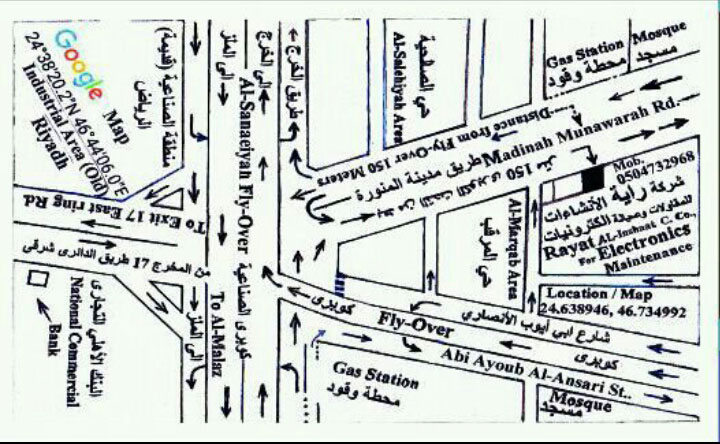 Google Map
24°38'20.2"N 46°44'06.0"E
Industrial Area (Old)
Riyadh
منطقة الصناعية (قديمة)
الرياض
إلى الملز
إلى الخرج
طريق الخرج
Al-Sanaeiyah Fly-Over
كوبرى الصناعية
To Al-Malaz
إلى الملز
حي الصالحية
Al-Salehiyah Area
Gas Station
محطة وقود
Mosque
مسجد
Distance from Fly-Over 150 Meters
Madinah Munawarah Rd.
طريق مدينة المنورة
Mob.
0504732968
شركة راية الأنشاءات
للمقاولات وصيانة الكترونيات
Rayat AL-Inshaat C. Co.,
For Electronics
Maintenance
Al-Marqab Area
حي المرقب
Location / Map
24.638946, 46.734992
To Exit 17 East ring Rd.
من المخرج 17 طريق الدائرى شرقي
البنك الأهلي التجارى
National Commercial
Bank
كوبرى
Fly-Over
شارع ابي أيوب الأنصاري
كوبرى
Abi Ayoub Al-Ansari St..
Gas Station
محطة وقود
Mosque
مسجد